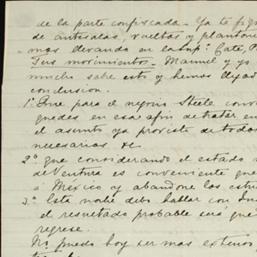 de la parte confiscada. Ya te fig
de antesalas, vueltas y planton
mas devando en la
Tus movimientos. Manuel y yo
mucho sabe esto y hemos
conclusion.
1º Que para el negocio Steele conv
quedes en esa afin de tratar en
el asunto ya provisto de todos
necesarios &c
2º que considerando el estado
de Ventura es conveniente que
a México y abandone los
3º Esta noche debo hablar con
el resultado probable será que
regrese.
No puedo hoy ser mas extenso